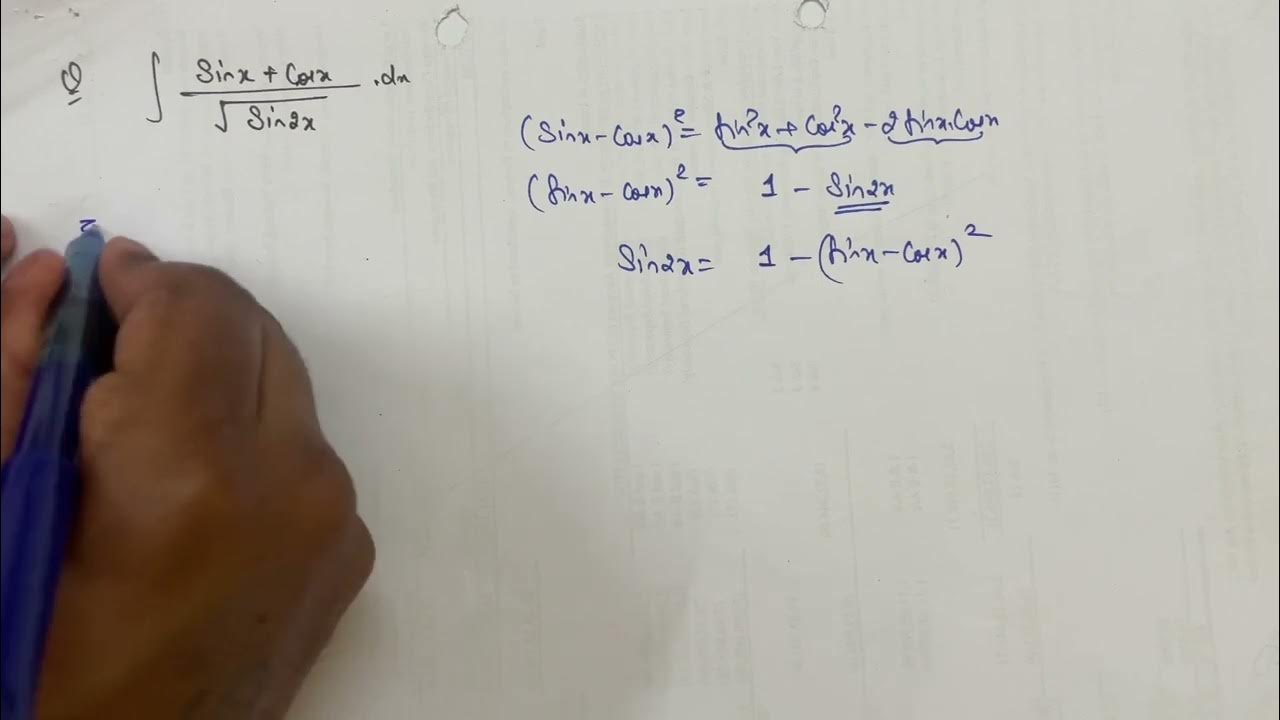 Q ∫ Sinx + Cosx / √Sin2x .dx
(Sinx - Cosx)² = Sin²x + Cos²x - 2 Sinx.Cosx
(Sinx - Cosx)² = 1 - Sin2x
Sin2x = 1 - (Sinx - Cosx)²
=